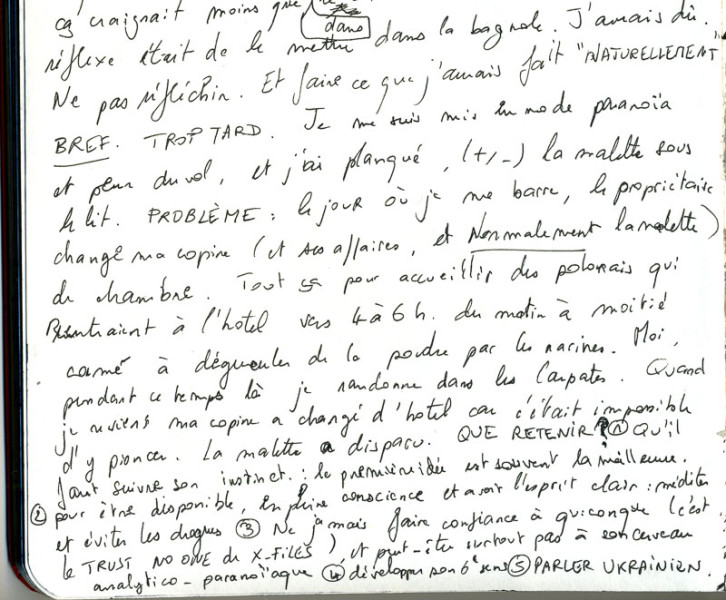 ça craignait moins que
dans
dans la bagnole. J'aurais dû.
réflexe était de le mettre
Ne pas réfléchir. Et faire ce que j'aurais fait "NATURELLEMENT
BREF. TROP TARD. Je me suis mis en mode paranoïa
et peur du vol, et j'ai planqué, (+/-) la malette sous
le lit. PROBLÈME : le jour où je me barre, le propriétaire
change ma copine (et ses affaires, et Normalement la malette)
de chambre. Tout ça pour accueillir des polonais qui
rentraient à l'hotel vers 4 à 6 h. du matin à moitié
camé à dégueuler de la poudre par les narines. Moi,
pendant ce temps là je randonne dans les Carpates. Quand
je reviens ma copine a changé d'hotel car c'était impossible
d'y pioncer. La malette a disparu. QUE RETENIR ? ① QU'il
faut suivre son instinct. : la première idée est souvent la meilleure.
② pour être disponible, en pleine conscience et avoir l'esprit clair : méditer
et éviter les drogues ③ Ne jamais faire confiance à quiconque (c'est
le TRUST NO ONE de X-FILES), et peut-être surtout pas à son cerveau
analytico-paranoïaque ④ développer son 6e sens ⑤ PARLER UKRAINIEN.